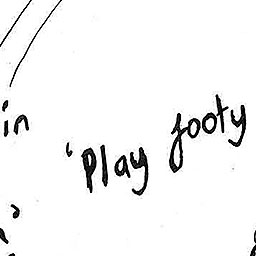 in
'Play footy